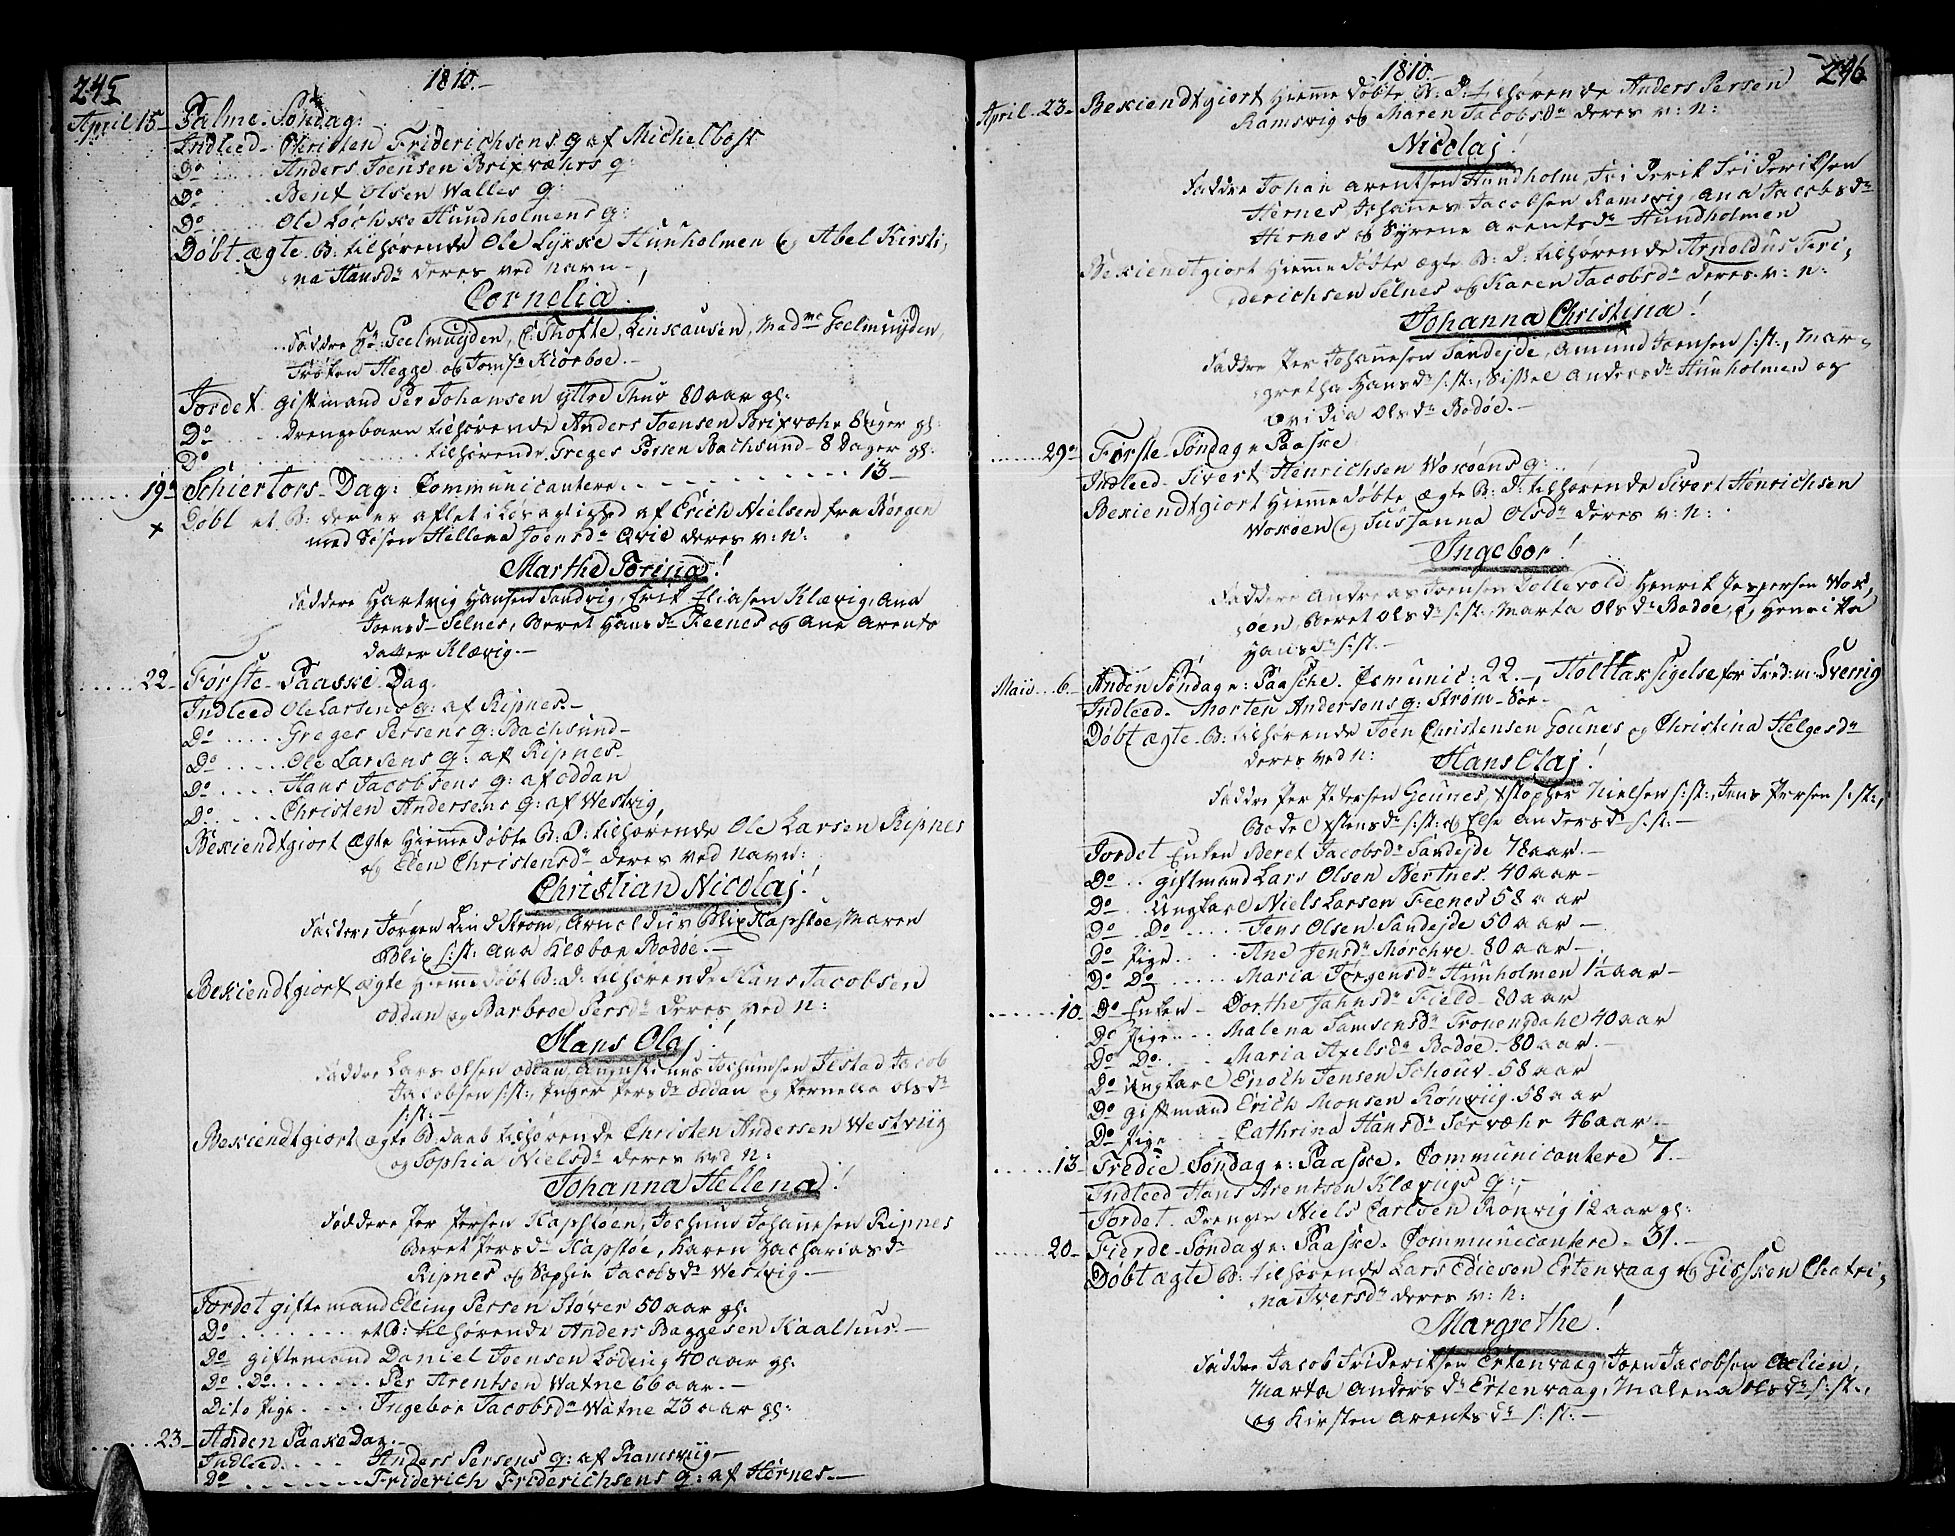 245 1810.-
April. 15- Palme-Søndag:
Indleed- Christen Friderichsens q af Michelbost
Do ...... Anders Joensen Brixværs q:
Do ...... Bent Olsen Walles q:
Do ...... Ole Lochke Hundholmens q:
Døbt ægte. B: tilhørende Ole Lykke Hunholmen og Abel Kirsti,
,na Hansdr deres ved Navn-,
Cornelia!
Faddre Hr: Geelmuyden, C: Thofte, Linkausen, Madme Geelmuyden,
Frøken Hegge og Jomfr Kiørboe.-
Jordet. giftmand Per Johansen yttre Thuv 80 aar gl:
Do .... Drengebarn tilhørende Anders Joensen Brixvæhr 6 uger gl:
Do ............ tilhørende Greger Persen Bachsund- 8 Dager gl:
...... 19de Schiertors-Dag: Communicantere. - - - - - - - - - 13-
x Døbt et B: der er aflet i Løsagtighed af Erich Nielsen fra Bergen
med Pigen Hellena Joensdr Qvie deres v: N:
Marthe Torina!
Faddere Hartvig Hansen Sandvig, Erik Eliasen Klævig, Ana
Joensdr Selnes, Beret Hansdr Feenes og Ane Arents
datter Klævig.-
...... 22- Første-Paaske Dag.
Indleed Ole Larsens q: af Ripnes.-
Do ..... Greges Persens q: Bachsund-
Do ..... Ole Larsens q: af Ripnes-
Do ..... Hans Jacobsens q: af oddan
Do ..... Christen Andersens q: af Westvig,
Bekiendtgiort Ægte Hiemme Døbte B: D: tilhørende Ole Larsen Ripnes
og Elen Christensdr deres ved Navn:
Christian Nicolaj!
Faddere Jørgen Lindstrøm, Arnoldus Blix Hapstøe, Maren
Blix s: st: Ana Klæboe Bodøe.-
Bekiendtgiort ægte Hiemme døbt B: D: tilhørende Hans Jacobsen
oddan og Barbroe Persdr deres ved N:
Hans Olaj!
Faddre Lars Olsen oddan, Augustinus Jochumsen Jestad Jacob
Jacobsen s: st:, Inger Persdr oddan og Pernella Olsdr
s: st:-
Bekiendtgiort ægte B: Daab tilhørende Christen Andersen Westviig
og Sophia Nielsdr deres ved N:
Johanna Hellena!
Faddere Per Persen Hapstøen, Jochum Johannesen Ripnes
Beret Persdr Hapstøe, Karen Zachariasdr
Ripnes og Sophia Jacobsdr Westvig.-
Jordet giftemand Eling Persen Støver 50 aar gl:
Do ....... et B: tilhørende Anders Baggesen Kaalhus.-
Do giftemand Daniel Joensen Løding 40 aar gl:
Do. Do. ..... Per Arentsen Watne 66 aar.-
Dito Pige .... Ingebor Jacobsdr Watne 23 aar gl:
...... 23- Anden Paaske Dag.-
Indleed .... Anders Persens q: af Ramsviig-
Do ...... Friderich Friderichsens q: af Hernes.-
1810.- 246
April. 23- Bekiendtgiort Hiemme døbte B: D: tilhørende Anders Persen
Ramsvig og Maren Jacobsdr deres v: N:
Nicolaj!
Faddre Johan Arentsen Hundholm, Friderik Frideriksen
Hernes, Johannes Jacobsen Ramsvig, Ana Jacobsdr
Hernes og Syrene Arentsdr Hundholmen
Bekiendtgiort Hiemme Døbte ægte B: D: tilhørende Arnoldus Fri,
derichsen Selnes og Karen Jacobsdr deres. v: n:
Johanna Christina!
Faddre Per Johannesen Sandejde, Amund Joensen s: st:, Mar-
gretha Hansdr s: st:, Sissel Andersdr Hunholmen og
Olsdr Bodøe.-
...... 29de Første-Søndag e Paaske
Indleed- Sivert Henrichsen Woxøens q:
Bekiendtgiort Hiemme Døbte ægte B: D: tilhørende Sivert Henrichsen
Woxøen og Sussanna Olsdr deres v: N:
Ingebor!
Faddere Andreas Joensen Lollevold, Henrik Jespersen Wox,
,øen, Beret Olsdr s: st:, Marta Olsdr Bodøe og Henrika
Hansdr s: st.-
Maii... 6- Anden Søndag e: Paasche. Comunic: 22.-, Holt Taksigelse for Fred: m: Sverrig
Indleed- Morten Andersens q: Strøm-Søe-
Døbt ægte. B: tilhørende Joen Christensen Gounes og Christina Helgesdr
deres ved N: Hans Olaj!
Faddre Per Petersen Geunes, Xstopher Nielsen s: st:, Jens Persen s: st:,
Bodel Xstensdr s: st: og Else Andersdr s: st:-
Jordet Enken Beret Jacobsdr Sandejde 78 aar.-
Do .. giftmand Lars Olsen Bertnes. 40 aar-
Do .. Ungkarl Niels Larsen Feenes 58 aar
Do . Do ..... Jens Olsen Sandejde 50 aar-
Do Pige .... Ane Jensdr Mørchve. 80 aar-
Do Do ..... Maria Jørgensdr Hunholmen 1½ aar-
...... 10. Do Enken- Dorthe Jahnsdr Field- 80 aar
Do Pige .... Malena Samsensdr Tronengdahl 40 aar
Do Do .... Maria Axelsdr Bodøe- 80 aar.-
Do Ungkarl Enoch Jensen Schouv- 58 aar
Do giftmand Erich Monsen Rønviig. 58 aar
Do Pige .... Cathrina Hansdr Sørvæhr 46 aar.-
...... 13- Tredie-Søndag e: Paaske. Communicantere 7.-
Indleed Hans Arentsen Klævigs q:-
Jordet. Drengen Niels Carlsen Rønvig 12 aar gl:
...... 20- Fierde-Søndag e: Paaske. Communicantere- 31.-
Døbt ægte B: tilhørende Lars Ediesen Ertenvaag og Gisken Chatri,
,na Iversdr deres v: n:
Margrethe!
Faddre Jacob Frideriksen Ertenvaag, Joen Jacobsen Alien,
Marta Andersdr Ertenvaag, Malena Olsdr s: st:,
og Kirsten Arentsdr s: st:-